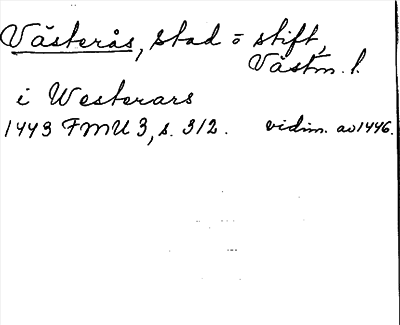 Västerås, stad o stift,
Västm. l.
i Westerars
1443 FMU 3, s. 312. vidim. av 1446.